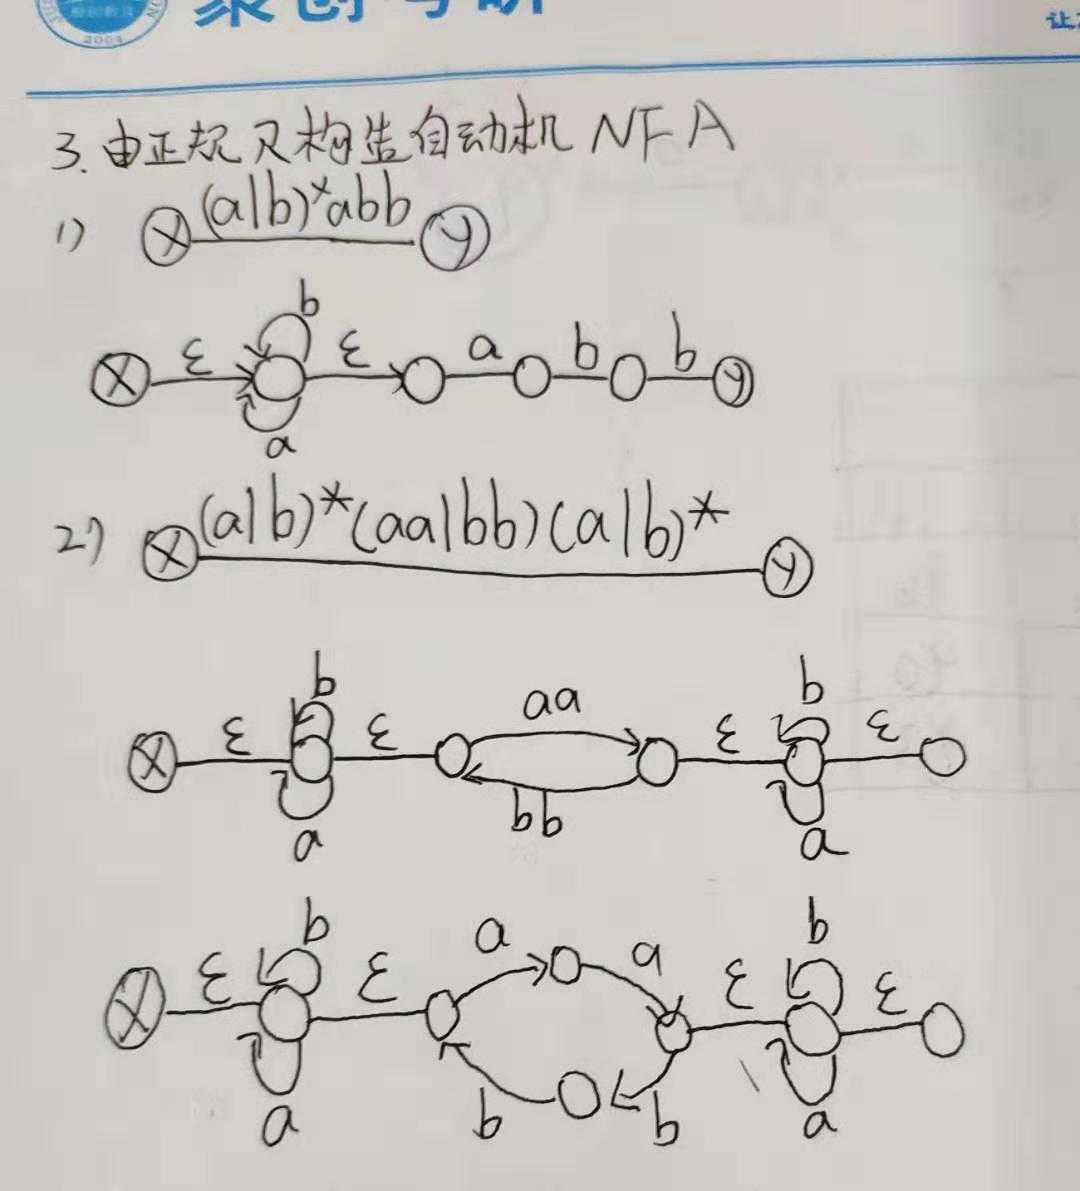 2004
让
3. 由正规尺构造自动机 NFA
1) X (a|b)*abb y
b
X ε ε a b b y
a
2) X (a|b)*(aa|bb)(a|b)* y
b aa b
X ε ε ε ε
a bb a
b a a b
X ε ε ε ε
a b b a